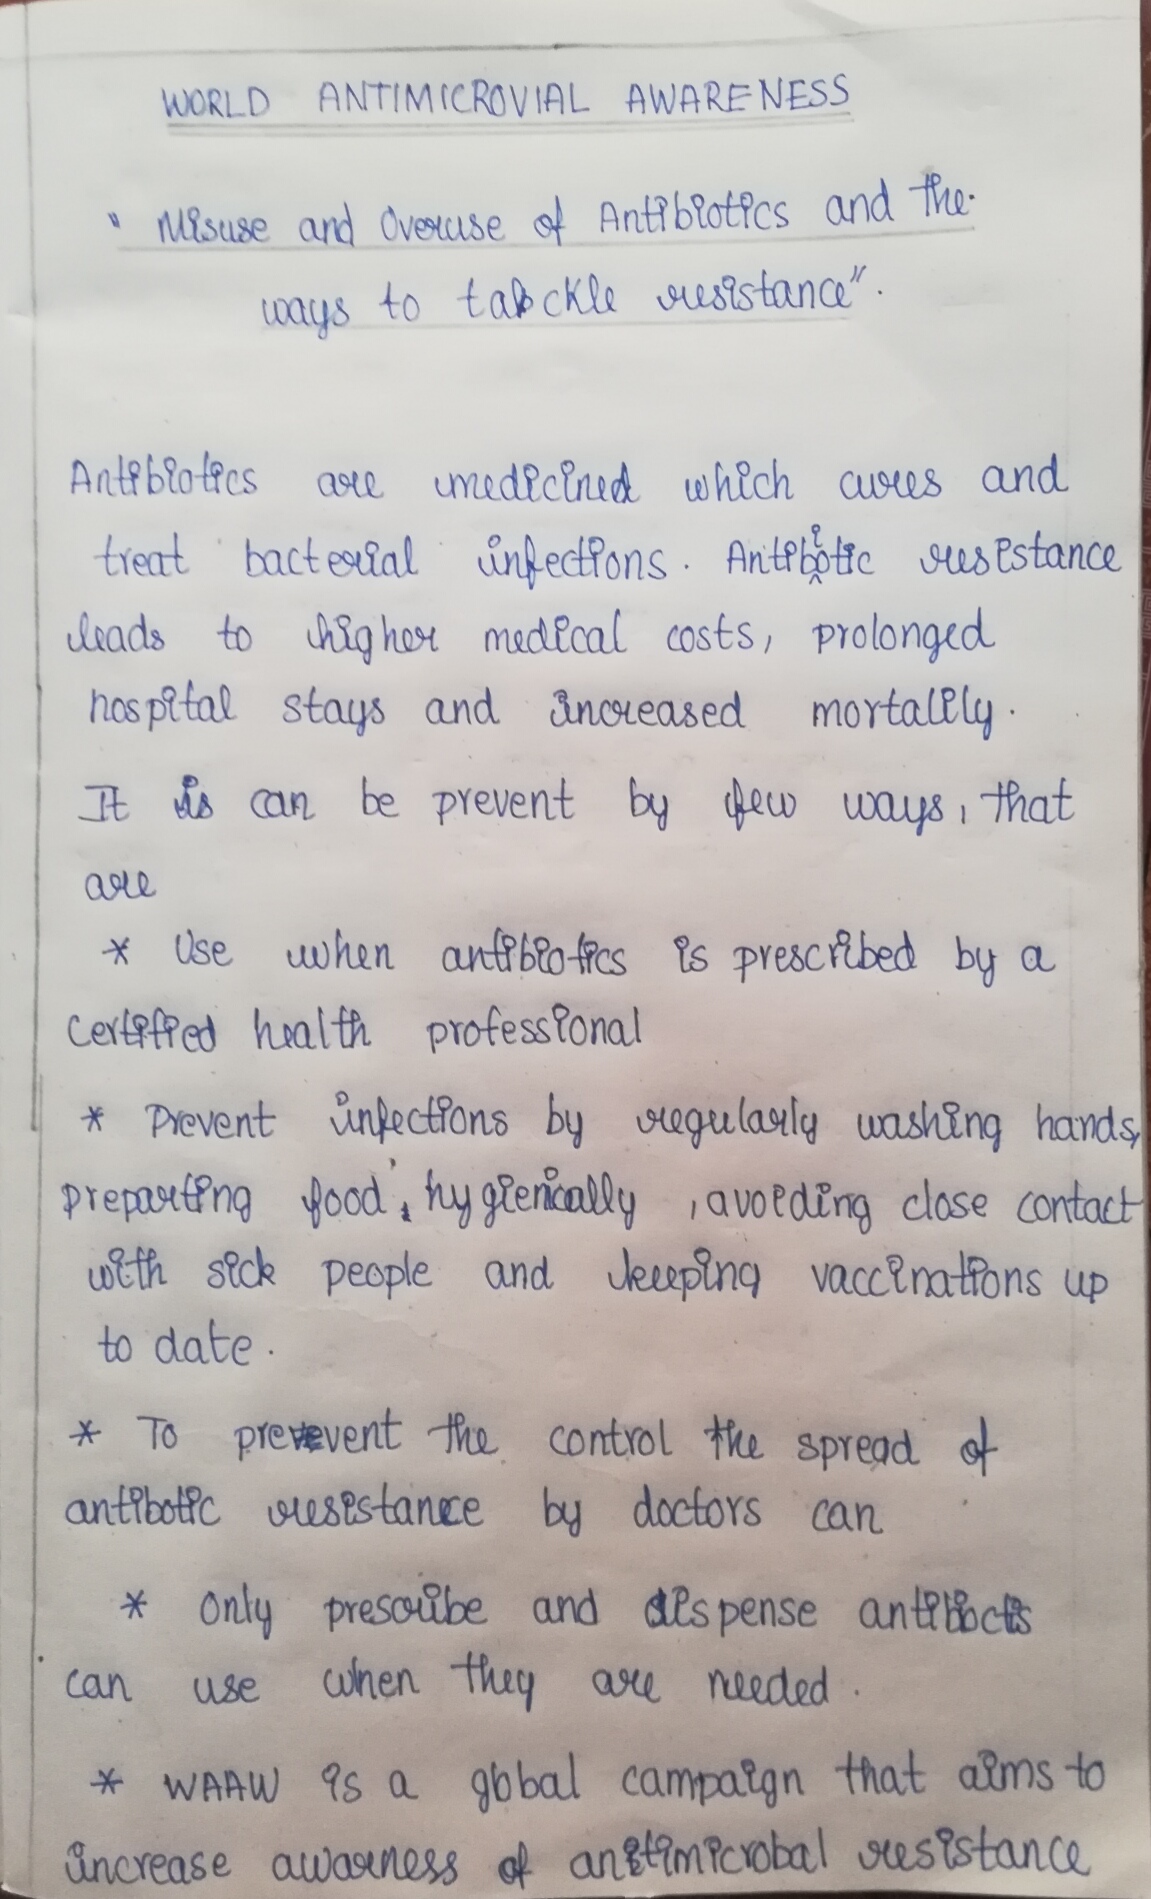 WORLD ANTIMICROVIAL AWARENESS
" Misuse and Overuse of Antibiotics and the
ways to tackle resistance".
Antibiotics are medicined which cures and
treat bacterial infections. Antibiotic resistance
leads to higher medical costs, prolonged
hospital stays and increased mortality.
It is can be prevent by few ways, that
are
* Use when antibiotics is prescribed by a
certified health professional
* Prevent infections by regularly washing hands,
preparting food, hygienically , avoiding close contact
with sick people and keeping vaccinations up
to date.
* To prevent the control the spread of
antibotic resistance by doctors can
* Only prescribe and dispense
can use when they are needed.
* WAAW is a global campaign that aims to
increase awarness of antimicrobal resistance